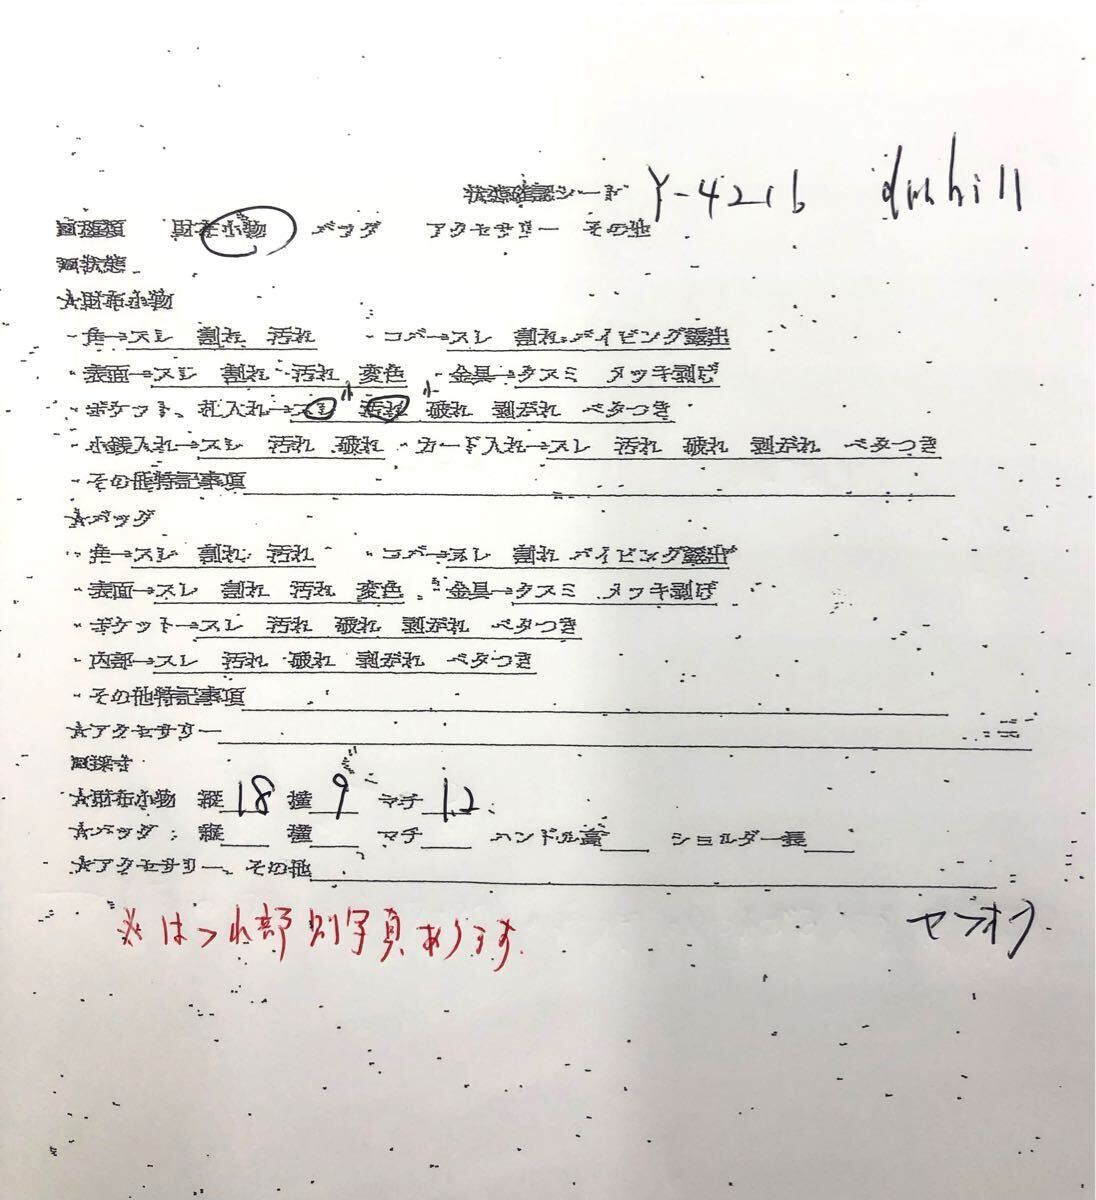 状態確認シート Y-4216 dunhill
■種類 財布小物 バッグ アクセサリー その他
■状態
★財布小物
・角→スレ 割れ 汚れ ・コバ→スレ 割れ パイピング露出
・表面→スレ 割れ 汚れ 変色 ・金具→クスミ メッキ剥げ
小 小
・ポケット、札入れ→スレ 汚れ 破れ 剥がれ ベタつき
・小銭入れ→スレ 汚れ 破れ ・カード入れ→スレ 汚れ 破れ 剥がれ ベタつき
・その他特記事項
★バッグ
・角→スレ 割れ 汚れ ・コバ→スレ 割れ パイピング露出
・表面→スレ 割れ 汚れ 変色 ・金具→クスミ メッキ剥げ
・ポケット→スレ 汚れ 破れ 剥がれ ベタつき
・内部→スレ 汚れ 破れ 剥がれ ベタつき
・その他特記事項
★アクセサリー
■採寸
★財布小物 縦 18 横 9 マチ 1.2
★バッグ: 縦 横 マチ ハンドル高 ショルダー長
★アクセサリー、その他
※ほつれ部別写真あります
ヤフオク